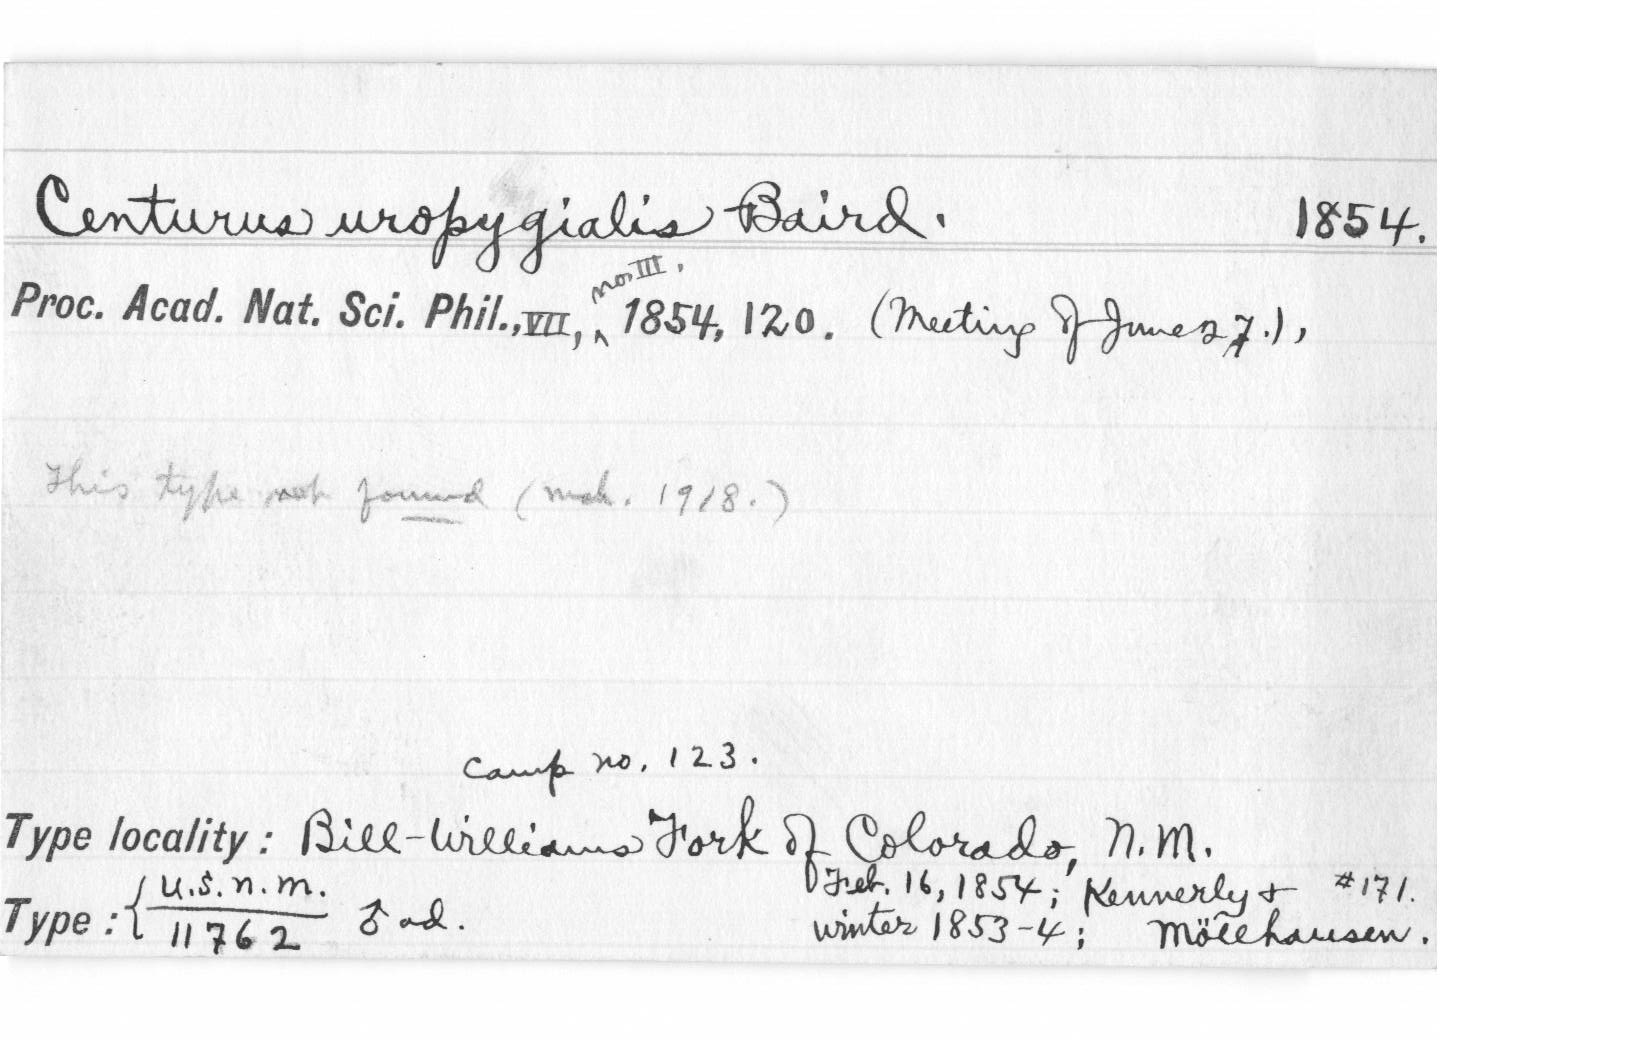 Centurus uropygialis Baird. 1854.
no. III,
Proc. Acad. Nat. Sci. Phil., VII, ^ 1854, 120. (Meeting of June 27.),
This type not found (Mch. 1918.)
Camp no. 123.
Type locality: Bill-Williams Fork of Colorado, N.M.
Type: { U.S.N.M. / 11762 ♂ ad. Feb. 16, 1854; Kennerly & #171.
winter 1853-4; Möllhausen.